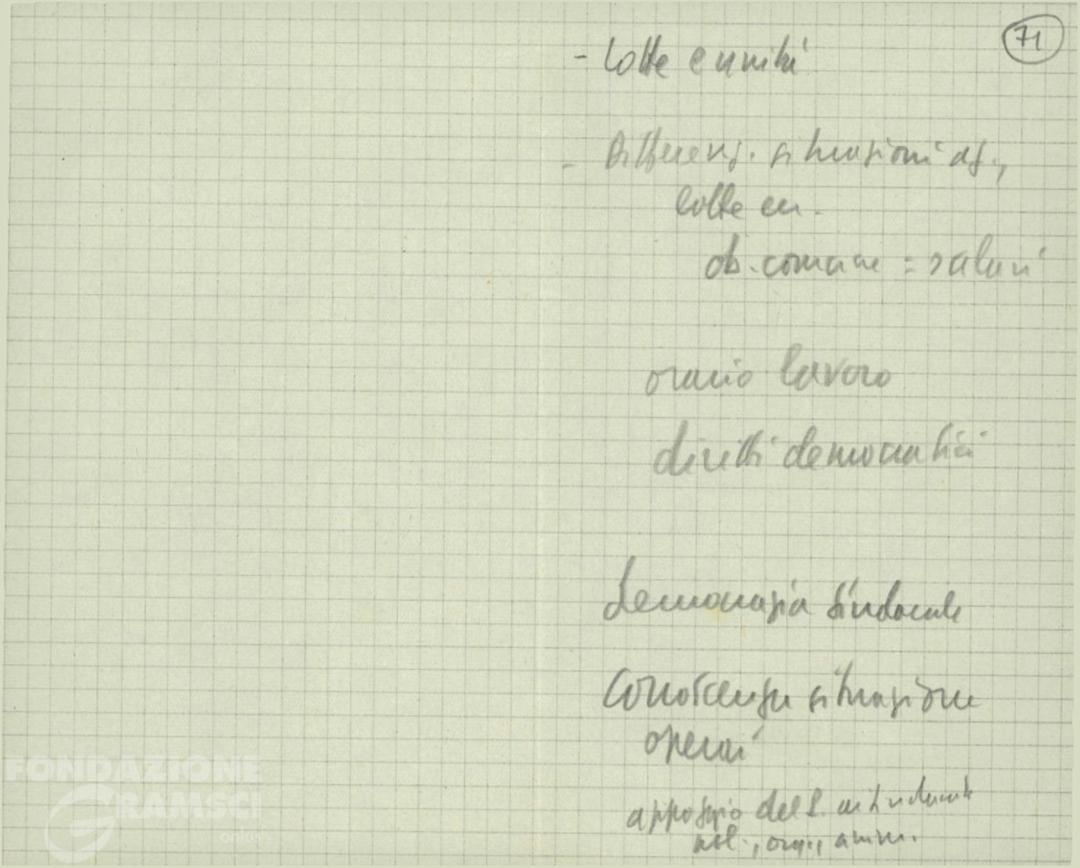 71
- Lotte e unità
- Differenz. situazioni az.,
lotte az.
ob. comune = salari
orario lavoro
diritti democratici
democrazia sindacale
Conoscenza situazione
operai
appoggio del P. sindacale
pol., org., amm.
FONDAZIONE
GRAMSCI